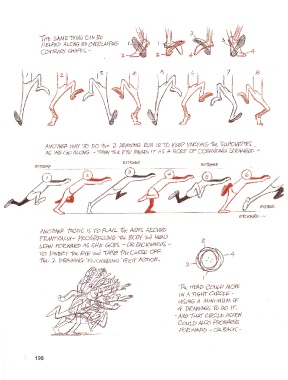 THE SAME THING CAN BE
HELPED ALONG BY OVERLAPPING
CONTRARY SHAPES -
1
2
3
4
1 2 3 4 5 6 7 8
ANOTHER WAY TO DO THE 2 DRAWING RUN IS TO KEEP VARYING THE SILHOUETTES
AS WE GO ALONG - THEN THE EYE READS IT AS A SORT OF CONFUSING SCRAMBLE -
EXTREME EXTREME EXTREME
EXTREME
ANOTHER TACTIC IS TO FLAIL THE ARMS AROUND
FRANTICALLY - PROGRESSING THE BODY AND HEAD
LEAN FORWARD AS SHE GOES - OR BACKWARDS -
TO DIVERT THE EYE AND TAKE THE CURSE OFF
THE 2 DRAWING FLICKERING FOOT ACTION.
THE HEAD COULD MOVE
IN A TIGHT CIRCLE -
USING A MINIMUM OF
4 DRAWINGS TO DO IT.
- AND THAT CIRCLE ACTION
COULD ALSO PROGRESS
FORWARD - OR BACK -
198